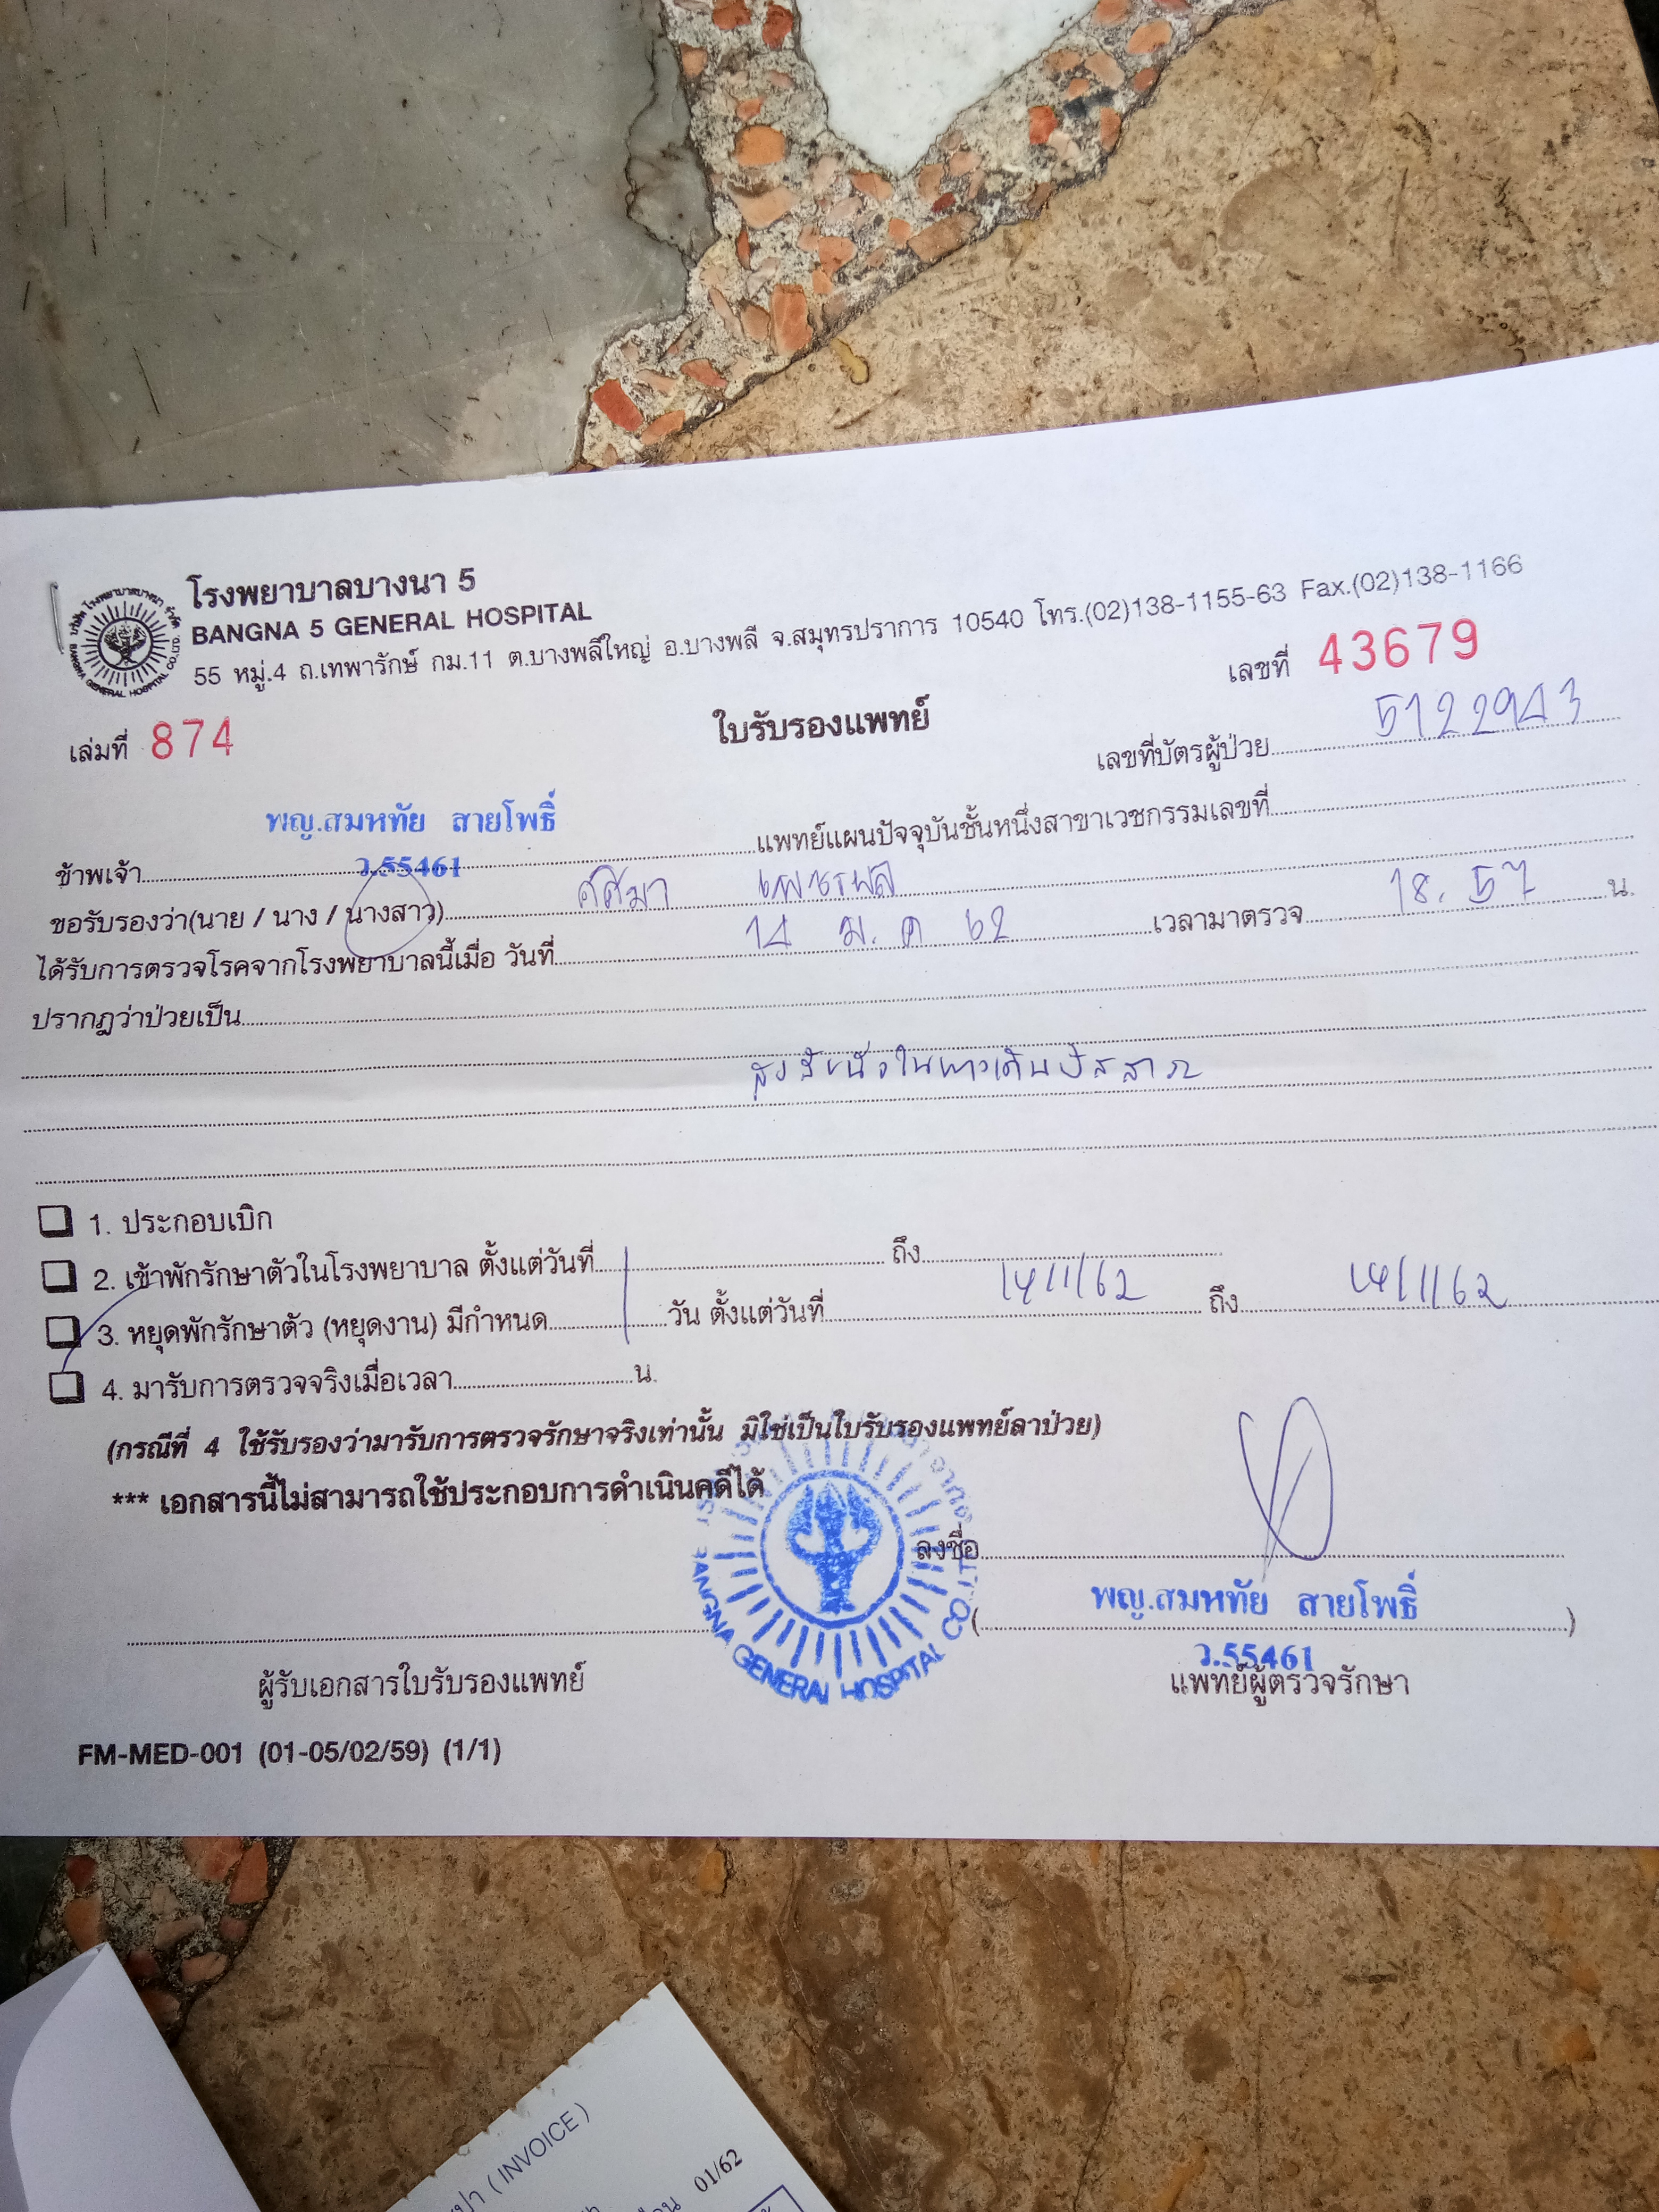 โรงพยาบาลบางนา 5
BANGNA 5 GENERAL HOSPITAL
55 หมู่.4 ถ.เทพารักษ์ กม.11 ต.บางพลีใหญ่ อ.บางพลี จ.สมุทรปราการ 10540 โทร.(02)138-1155-63 Fax.(02)138-1166
เล่มที่ 874
ใบรับรองแพทย์
เลขที่ 43679
เลขที่บัตรผู้ป่วย 5122943
พญ.สมหทัย สายโพธิ์
ข้าพเจ้า ว.55461 แพทย์แผนปัจจุบันชั้นหนึ่งสาขาเวชกรรมเลขที่
ขอรับรองว่า(นาย / นาง / นางสาว) ศศิมา
ได้รับการตรวจโรคจากโรงพยาบาลนี้เมื่อ วันที่ 14 ม.ค 62 เวลามาตรวจ 18.57 น.
ปรากฏว่าป่วยเป็น
สงสัยนิ่วในทางเดินปัสสาวะ
1. ประกอบเบิก
2. เข้าพักรักษาตัวในโรงพยาบาล ตั้งแต่วันที่ ถึง
3. หยุดพักรักษาตัว (หยุดงาน) มีกำหนด 1 วัน ตั้งแต่วันที่ 14/1/62 ถึง 14/1/62
4. มารับการตรวจจริงเมื่อเวลา น.
(กรณีที่ 4 ใช้รับรองว่ามารับการตรวจรักษาจริงเท่านั้น มิใช่เป็นใบรับรองแพทย์ลาป่วย)
*** เอกสารนี้ไม่สามารถใช้ประกอบการดำเนินคดีได้
ลงชื่อ
(พญ.สมหทัย สายโพธิ์)
ว.55461
ผู้รับเอกสารใบรับรองแพทย์
แพทย์ผู้ตรวจรักษา
BANGNA GENERAL HOSPITAL CO.,LTD.
FM-MED-001 (01-05/02/59) (1/1)
(INVOICE)
01/62